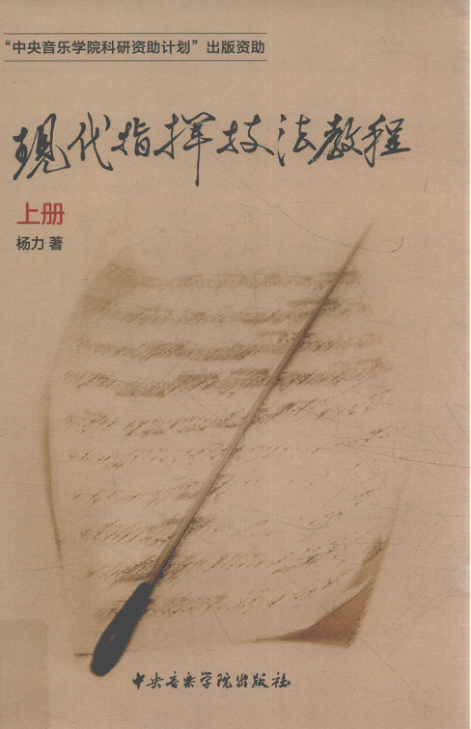 “中央音乐学院科研资助计划”出版资助
现代指挥技法教程
上册
杨力 著
中央音乐学院出版社